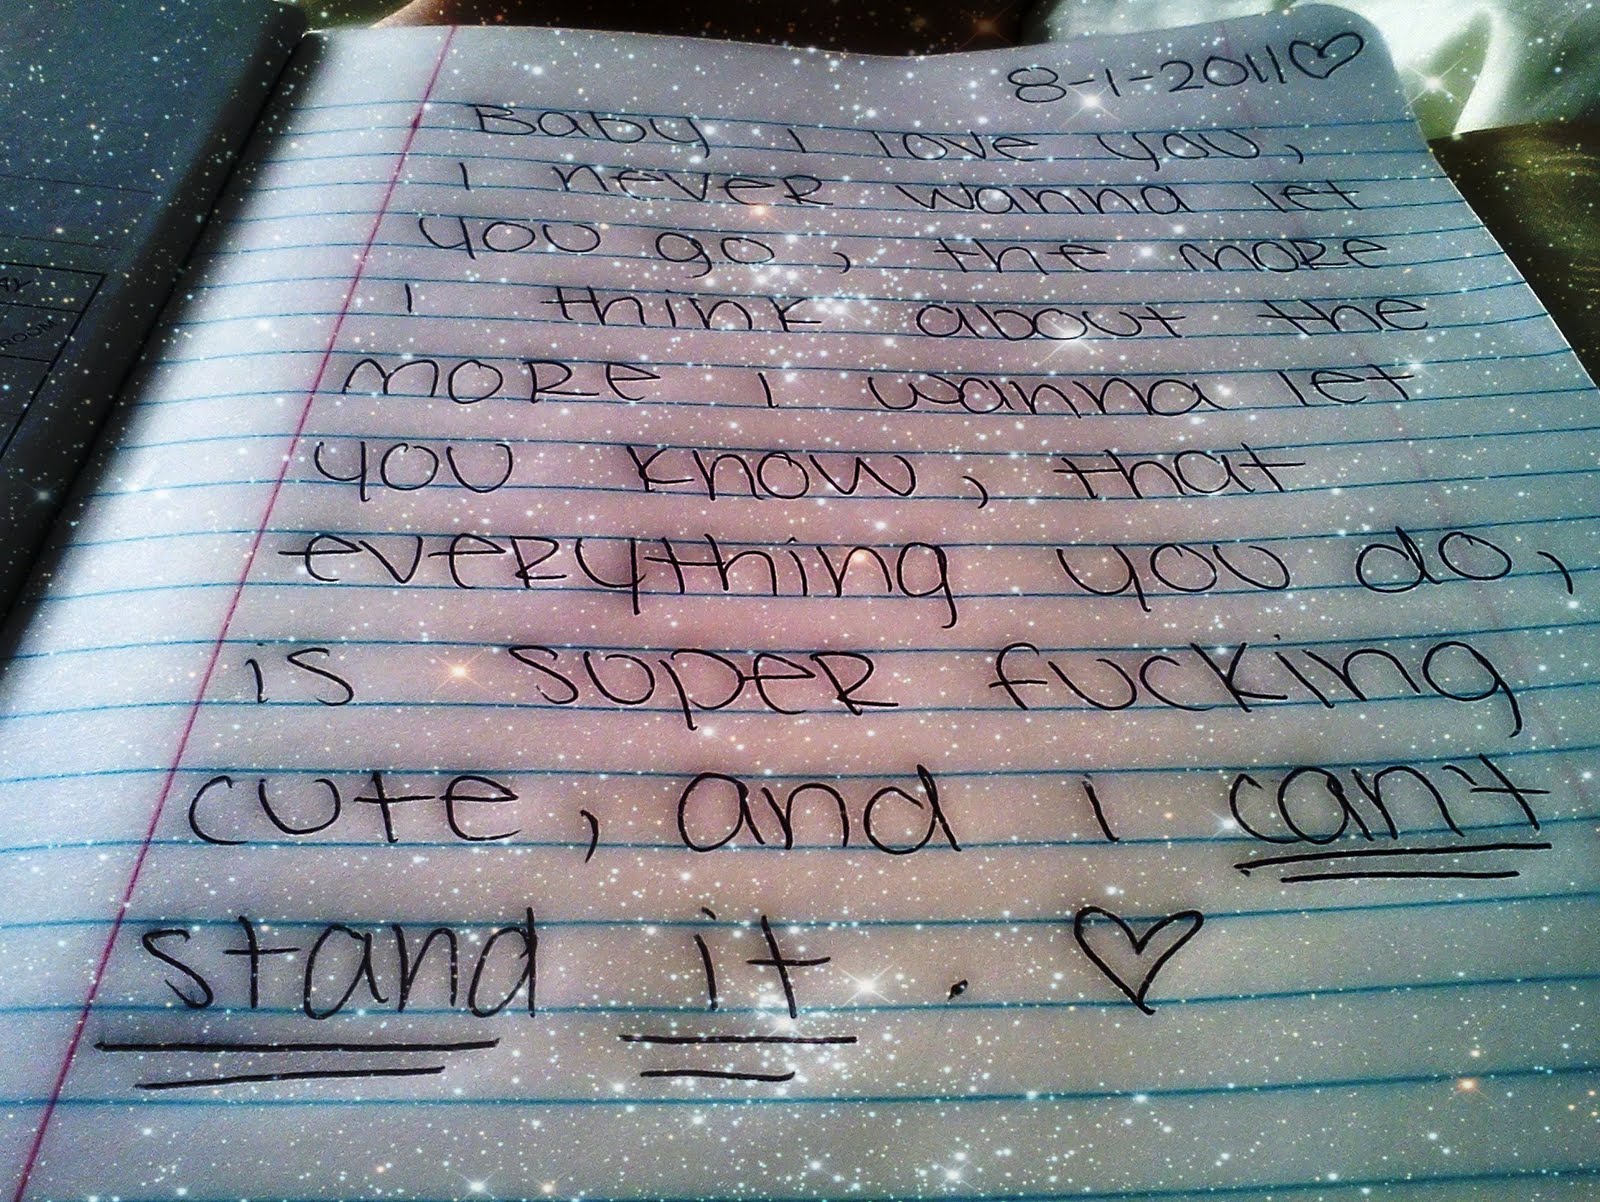 8-1-2011♡
Baby i love you,
i never wanna let
you go, the more
i think about the
more i wanna let
you know, that
everything you do,
is super fucking
cute, and i can't
stand it. ♡
ROOM